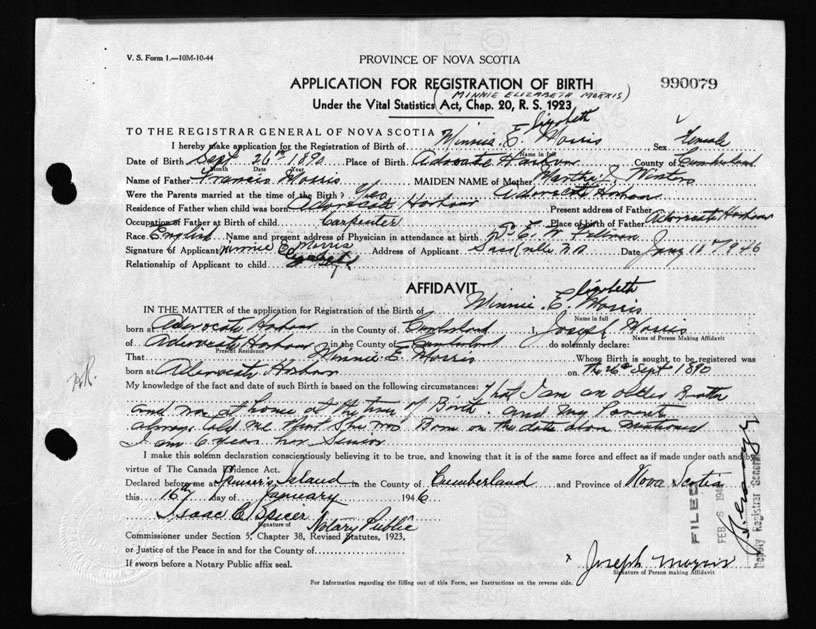 V. S. Form 1.—10M-10-44
PROVINCE OF NOVA SCOTIA
APPLICATION FOR REGISTRATION OF BIRTH
990079
(MINNIE ELIZABETH MORRIS)
Under the Vital Statistics Act, Chap. 20, R. S. 1923
TO THE REGISTRAR GENERAL OF NOVA SCOTIA
I hereby make application for the Registration of Birth of Minnie E. lizabeth Morris Sex Female
Name in full
Date of Birth Sept 26th 1890 Place of Birth Advocate Harbour County of Cumberland
Month Date Year
Name of Father Francis Morris MAIDEN NAME of Mother Martha J Winters
Were the Parents married at the time of the Birth? Yes
Residence of Father when child was born Advocate Harbour Present address of Father Advocate Harbour
Occupation of Father at Birth of child Carpenter Place of Birth of Father Advocate Harbour
Race English Name and present address of Physician in attendance at birth
Signature of Applicant Minnie E Morris Address of Applicant Sackville N.B Date
Relationship of Applicant to child
AFFIDAVIT
IN THE MATTER of the application for Registration of the Birth of Minnie E. lizabeth Morris
Name in full
born at Advocate Harbour in the County of Cumberland I, Joseph Morris
Name of Person Making Affidavit
of Advocate Harbour in the County of Cumberland do solemnly declare:
Present Residence
That Minnie E. Morris Whose Birth is sought to be registered was
born at Advocate Harbour on The 26 Sept 1890
My knowledge of the fact and date of such Birth is based on the following circumstances: That I am an older Brother
and was at home at the time of Birth. and my Parents
always told me that she was Born on the date above mentioned
I am 6 years her Senior
I make this solemn declaration conscientiously believing it to be true, and knowing that it is of the same force and effect as if made under oath and by
virtue of The Canada Evidence Act.
Declared before me at Spencer's Island in the County of Cumberland and Province of Nova Scotia
this 16th day of January 1946
Isaac C Spicer Notary Public
Signature of
Commissioner under Section 5, Chapter 38, Revised Statutes, 1923,
or Justice of the Peace in and for the County of
If sworn before a Notary Public affix seal.
x Joseph Morris
Signature of Person making Affidavit
For Information regarding the filling out of this Form, see Instructions on the reverse side.
FILED
FEB 8 194
Deputy Registrar General